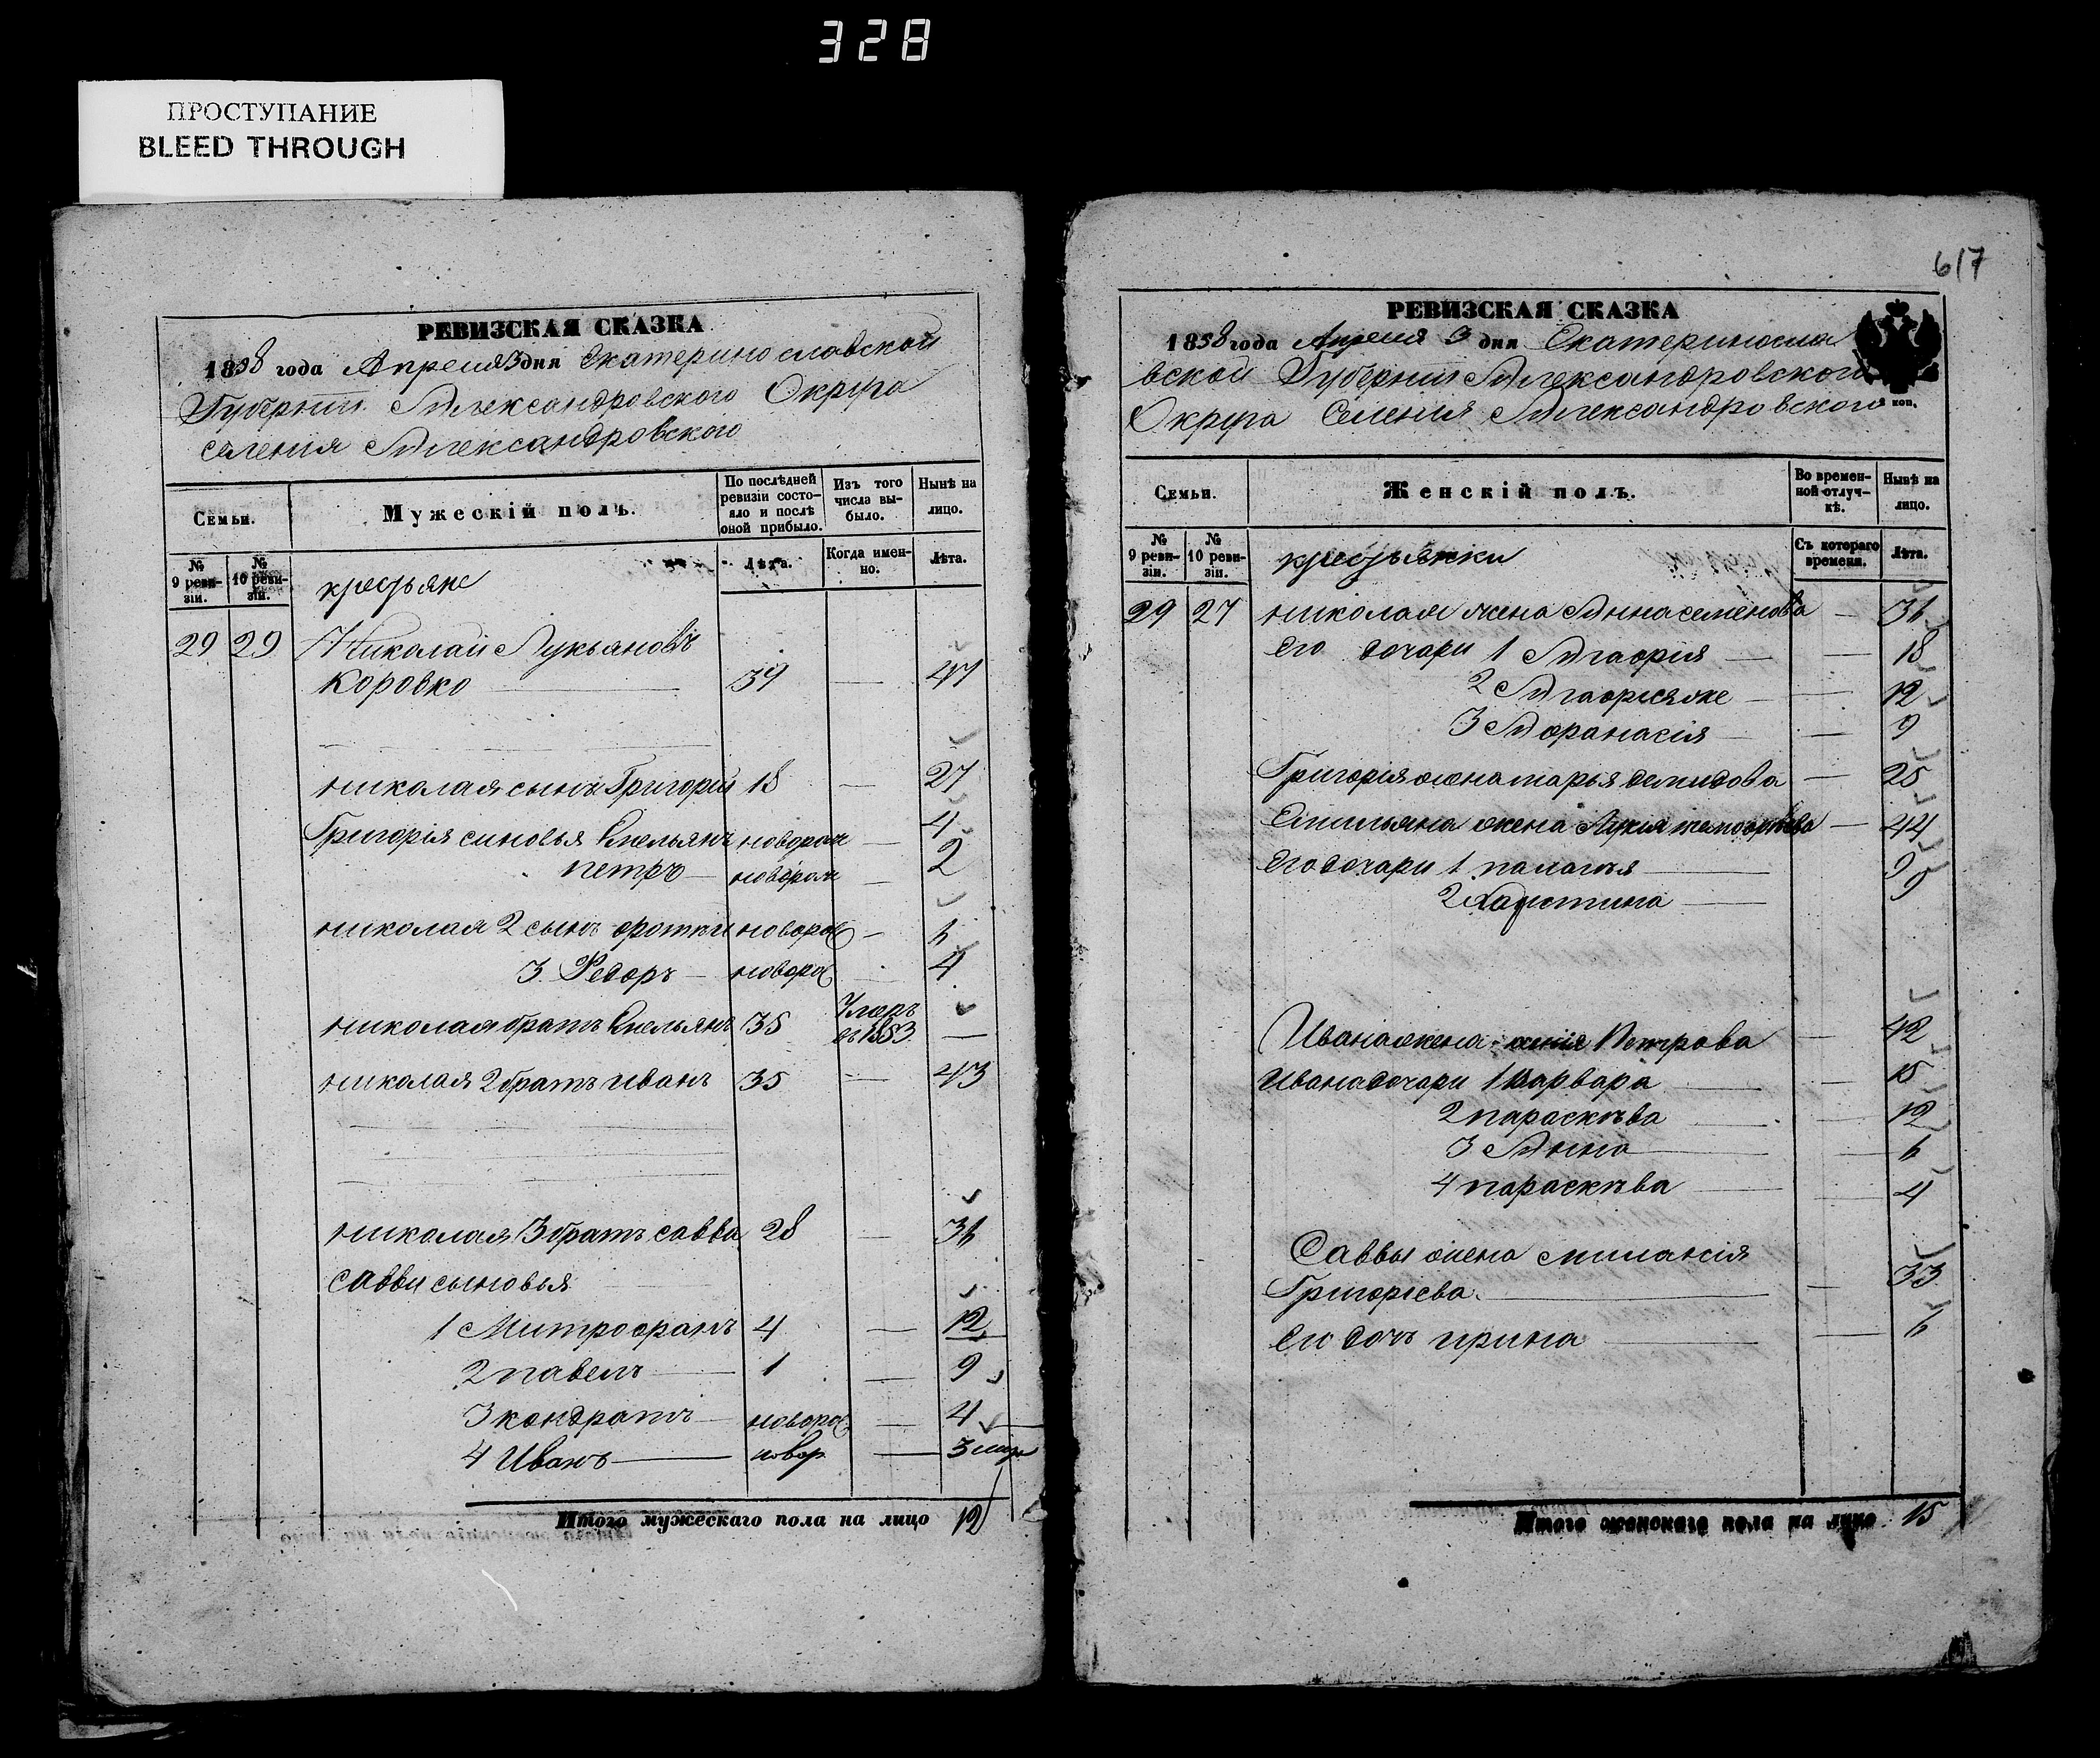 328
ПРОСТУПАНИЕ
BLEED THROUGH
РЕВИЗСКАЯ СКАЗКА
1858 года Апреля 3 дня Екатеринославской
Губернии Александровского Округа
селения Александровского
Семьи.
Мужескій полъ.
По послѣдней ревизіи состояло и послѣ оной прибыло.
Изъ того числа выбыло.
Нынѣ на лицо.
№ 9 ревизіи.
№ 10 ревизіи.
крестьяне
Лѣта.
Когда именно.
Лѣта.
29 29 Николай Лукьяновъ
Коровко — 39 — 47
николая сынъ Григорій 18 — 27
Григорія синовья Емельянъ новорож — 4
петръ — новорож — 2
николая 2 сынъ новорож — 6
3. Федоръ — новорож — 4
николая братъ Емельянъ 35 Умеръ въ 1853 —
николая 2 братъ иванъ 35 — 43
николая 3 братъ савва 28 — 36
саввы сыновья
1 Митрофанъ 4 — 12
2 павелъ — 1 — 9
3 кондратъ — новорож — 4
4 Иванъ — новор — 3
Итого мужескаго пола на лицо 12
617
РЕВИЗСКАЯ СКАЗКА
1858 года Апреля 3 дня Екатеринославской
Губернии Александровского
Округа Селения Александровского
коп.
Семьи.
Женскій полъ.
Во временной отлучкѣ.
Нынѣ на лицо.
№ 9 ревизіи.
№ 10 ревизіи.
крестьянки
Съ котораго времени.
Лѣта.
29 27 николая жена Анна семенова — 36
Его дочари 1 Агафия — 18
2 Агафия же — 12
3 Афанасія — 9
Григорія жена марья демидова — 25
Емильяна жена — 44
Его дочари 1 палагья — 9
2 Хористина — 9
Ивана жена Петрова — 42
Ивана дочари 1 Варвара — 15
2 параскѣва — 12
3 Анна — 6
4 параскѣва — 4
Саввы жена миланія
Григоріева. — 33
Его дочъ ирина — 6
Итого женскаго пола на лицо 15